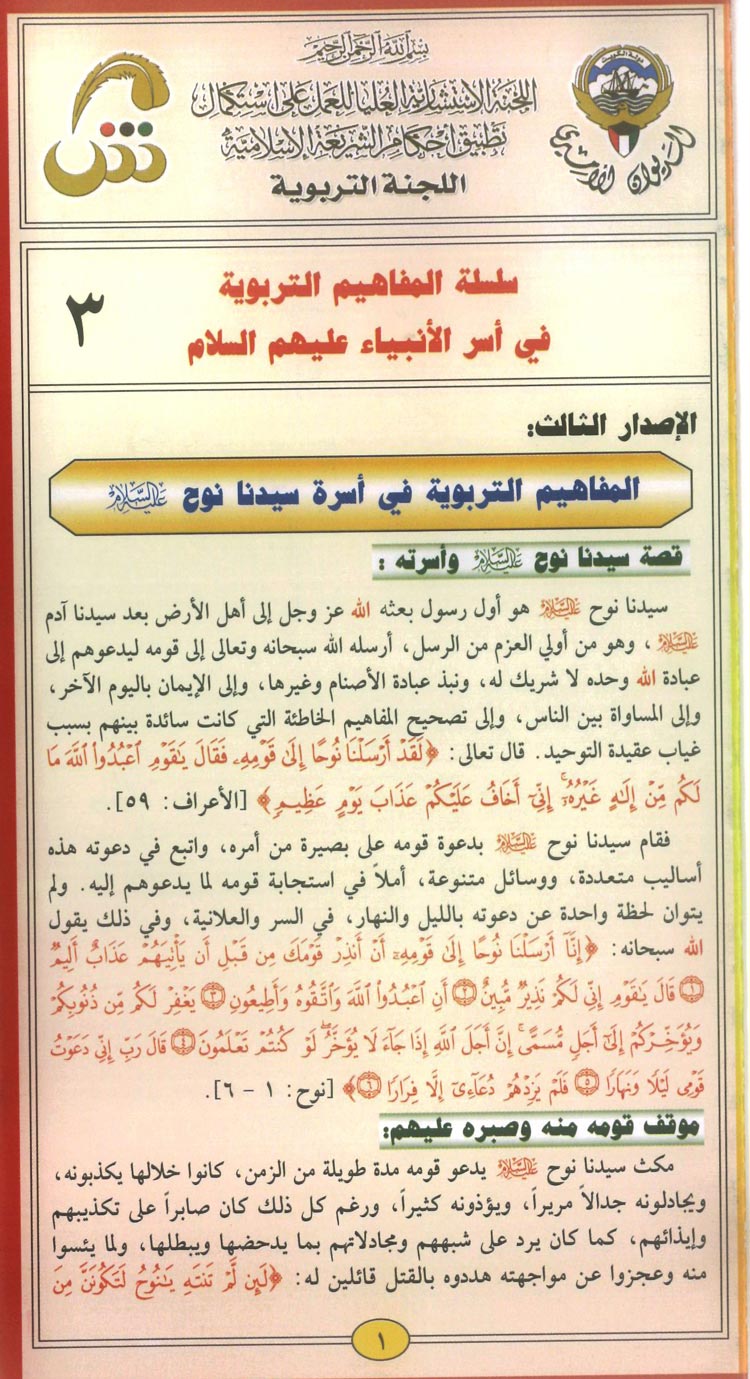 بسم الله الرحمن الرحيم
اللجنة الاستشارية العليا للعمل على استكمال
تطبيق أحكام الشريعة الإسلامية
اللجنة التربوية
دولة الكويت
الديوان الأميري
سلسلة المفاهيم التربوية
في أسر الأنبياء عليهم السلام
٣
الإصدار الثالث:
المفاهيم التربوية في أسرة سيدنا نوح عليه السلام
قصة سيدنا نوح عليه السلام وأسرته :
سيدنا نوح عليه السلام هو أول رسول بعثه الله عز وجل إلى أهل الأرض بعد سيدنا آدم
عليه السلام ، وهو من أولي العزم من الرسل، أرسله الله سبحانه وتعالى إلى قومه ليدعوهم إلى
عبادة الله وحده لا شريك له، ونبذ عبادة الأصنام وغيرها، وإلى الإيمان باليوم الآخر،
وإلى المساواة بين الناس، وإلى تصحيح المفاهيم الخاطئة التي كانت سائدة بينهم بسبب
غياب عقيدة التوحيد. قال تعالى: ﴿لَقَدْ أَرْسَلْنَا نُوحًا إِلَىٰ قَوْمِهِۦ فَقَالَ يَٰقَوْمِ ٱعْبُدُوا۟ ٱللَّهَ مَا
لَكُم مِّنْ إِلَٰهٍ غَيْرُهُۥٓ إِنِّىٓ أَخَافُ عَلَيْكُمْ عَذَابَ يَوْمٍ عَظِيمٍ﴾ [الأعراف: ٥٩].
فقام سيدنا نوح عليه السلام بدعوة قومه على بصيرة من أمره، واتبع في دعوته هذه
أساليب متعددة، ووسائل متنوعة، أملاً في استجابة قومه لما يدعوهم إليه. ولم
يتوان لحظة واحدة عن دعوته بالليل والنهار، في السر والعلانية، وفي ذلك يقول
الله سبحانه: ﴿إِنَّآ أَرْسَلْنَا نُوحًا إِلَىٰ قَوْمِهِۦٓ أَنْ أَنذِرْ قَوْمَكَ مِن قَبْلِ أَن يَأْتِيَهُمْ عَذَابٌ أَلِيمٌ
١ قَالَ يَٰقَوْمِ إِنِّى لَكُمْ نَذِيرٌ مُّبِينٌ ٢ أَنِ ٱعْبُدُوا۟ ٱللَّهَ وَٱتَّقُوهُ وَأَطِيعُونِ ٣ يَغْفِرْ لَكُم مِّن ذُنُوبِكُمْ
وَيُؤَخِّرْكُمْ إِلَىٰٓ أَجَلٍ مُّسَمًّى إِنَّ أَجَلَ ٱللَّهِ إِذَا جَآءَ لَا يُؤَخَّرُ لَوْ كُنتُمْ تَعْلَمُونَ ٤ قَالَ رَبِّ إِنِّى دَعَوْتُ
قَوْمِى لَيْلًا وَنَهَارًا ٥ فَلَمْ يَزِدْهُمْ دُعَآءِىٓ إِلَّا فِرَارًا ٦﴾ [نوح: ١ - ٦].
موقف قومه منه وصبره عليهم:
مكث سيدنا نوح عليه السلام يدعو قومه مدة طويلة من الزمن، كانوا خلالها يكذبونه،
ويجادلونه جدالاً مريراً، ويؤذونه كثيراً، ورغم كل ذلك كان صابراً على تكذيبهم
وإيذائهم، كما كان يرد على شبههم ومجادلاتهم بما يدحضها ويبطلها، ولما يئسوا
منه وعجزوا عن مواجهته هددوه بالقتل قائلين له: ﴿لَئِن لَّمْ تَنتَهِ يَٰنُوحُ لَتَكُونَنَّ مِنَ
١